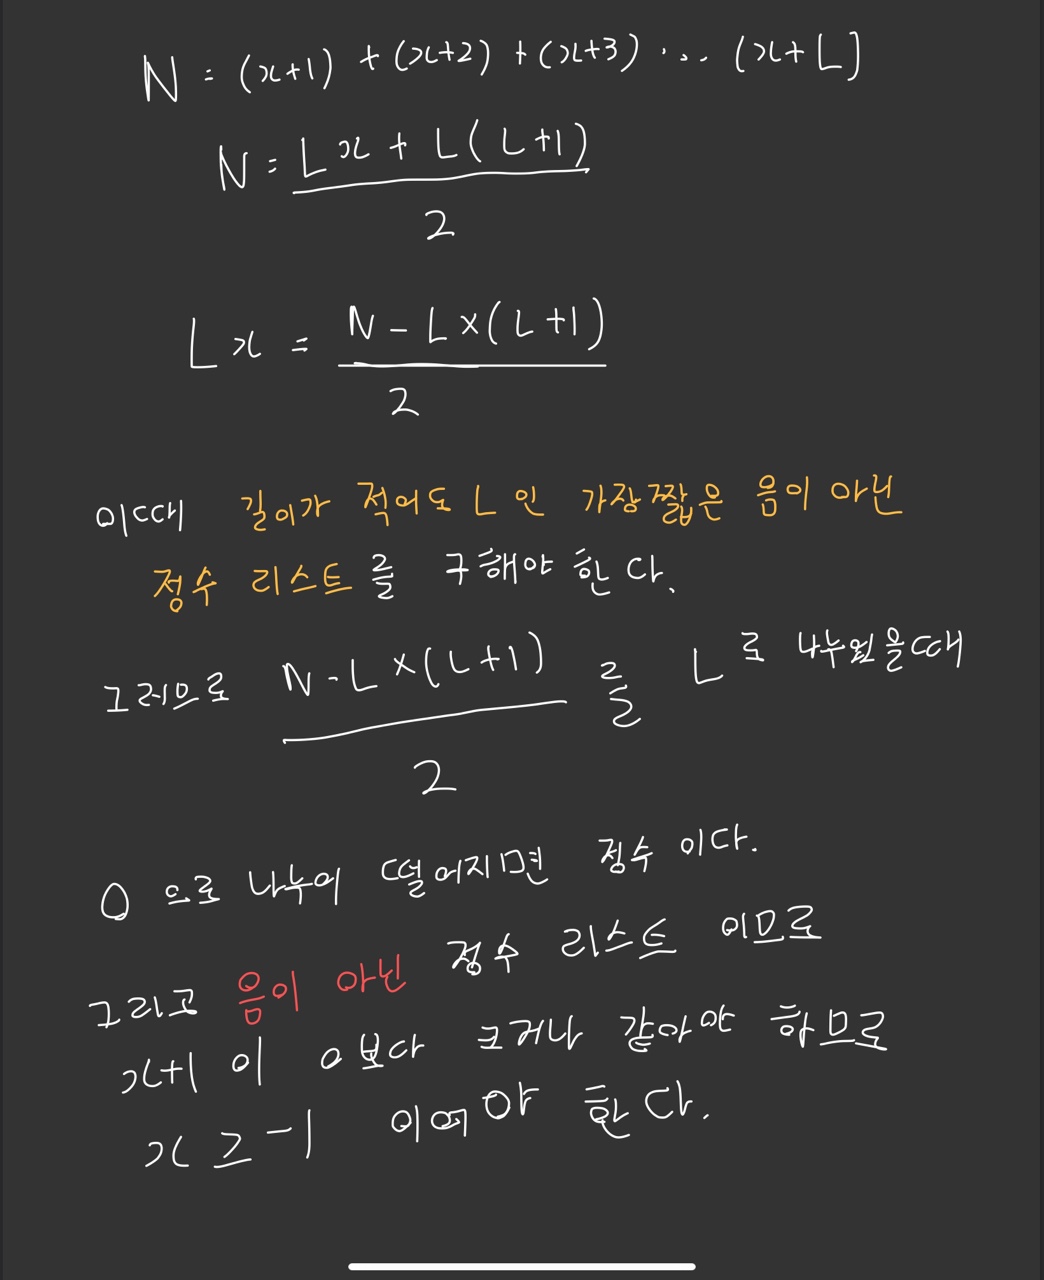 N = (x+1) + (x+2) + (x+3) ... (x+L)
N = Lx + L(L+1)
2
Lx = N - L×(L+1)
2
이때 길이가 적어도 L 인 가장짧은 음이 아닌
정수 리스트를 구해야 한다.
그러므로 N-L×(L+1) 를 L로 나누었을때
2
0 으로 나누어 떨어지면 정수 이다.
그리고 음이 아닌 정수 리스트 이므로
x+1 이 0보다 크거나 같아야 하므로
x ≥ -1 이여야 한다.